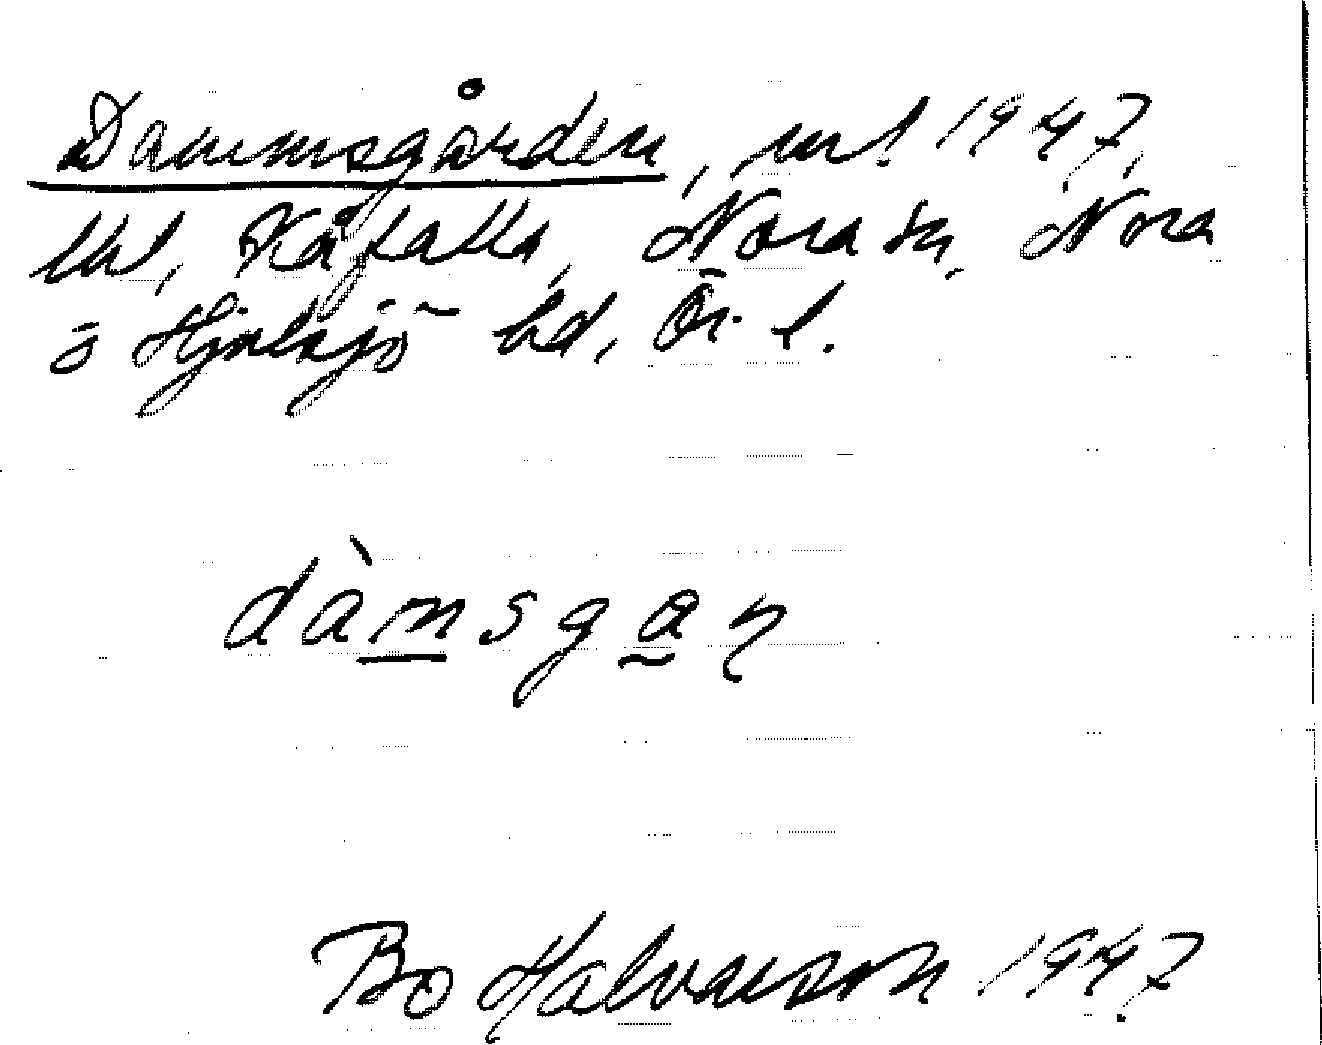 Dammsgården, url 1947,
tkl, Kåfalla, Nora sn, Nora
o Hjulsjö hd, Ör. l.
dàmsgaɳ
Bo Halvarson 1947